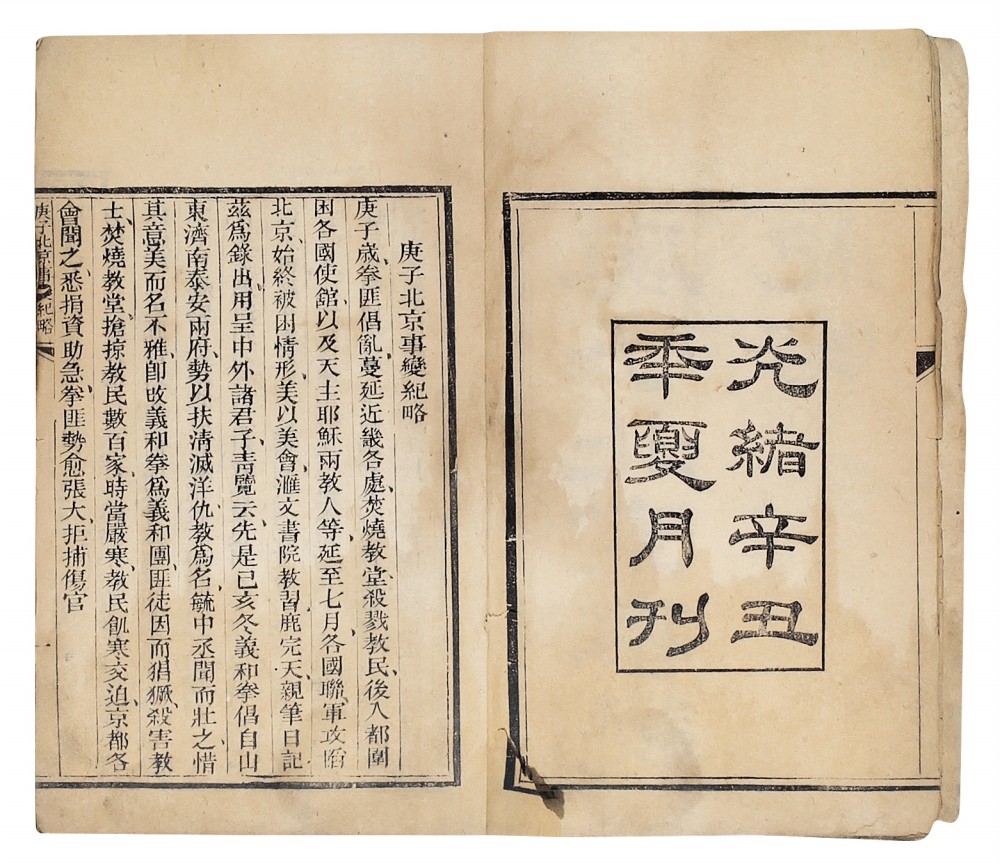 光緒辛丑
季夏月刊
庚子北京事變紀略
庚子歲、拳匪倡亂、蔓延近畿各處、焚燒教堂、殺戮教民、後入都圍
困各國使館、以及天主耶穌兩教人等、延至七月、各國聯軍攻陷
北京、始終被困情形、美以美會、滙文書院教習鹿完天、親筆日記
茲爲錄出、用呈中外諸君子、靑覽云、先是己亥冬、義和拳倡自山
東濟南泰安兩府、勢以扶清滅洋仇教爲名、毓中丞聞而壯之、惜
其意美而名不雅、卽改義和拳爲義和團、匪徒因而猖獗、殺害教
士、焚燒教堂、搶掠教民數百家、時當嚴寒、教民飢寒交迫、京都各
會聞之、悉捐資助急、拳匪勢愈張大、拒捕傷官
庚子北京事變紀略